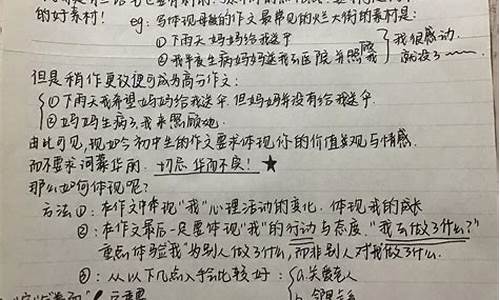 的好素材！ eg: 写体现母爱的作文最常见的烂大街的素材是:
①下雨天妈妈给我送伞
②我半夜生病妈妈送我去医院并照顾我
我很感动.
就没了
但是稍作更改便可成为高分作文:
①下雨天我希望妈妈给我送伞.但妈妈并没有给我送伞.
②妈妈生病了.我来照顾她.
由此可见,现如今初中生的作文要求体现你的价值美观与情感.
而不要求词藻华丽. 切忌华而不实！★
那么如何体现呢?
方法①: 在作文中体现“我”心理活动的变化. 体现我的成长
②: 在作文最后一定要体现“我”的行动与态度.“我去做了什么?”
重点体验我“为别人做了什么,而非别人对我做了什么.
③: 从以下几点入手会比较好: